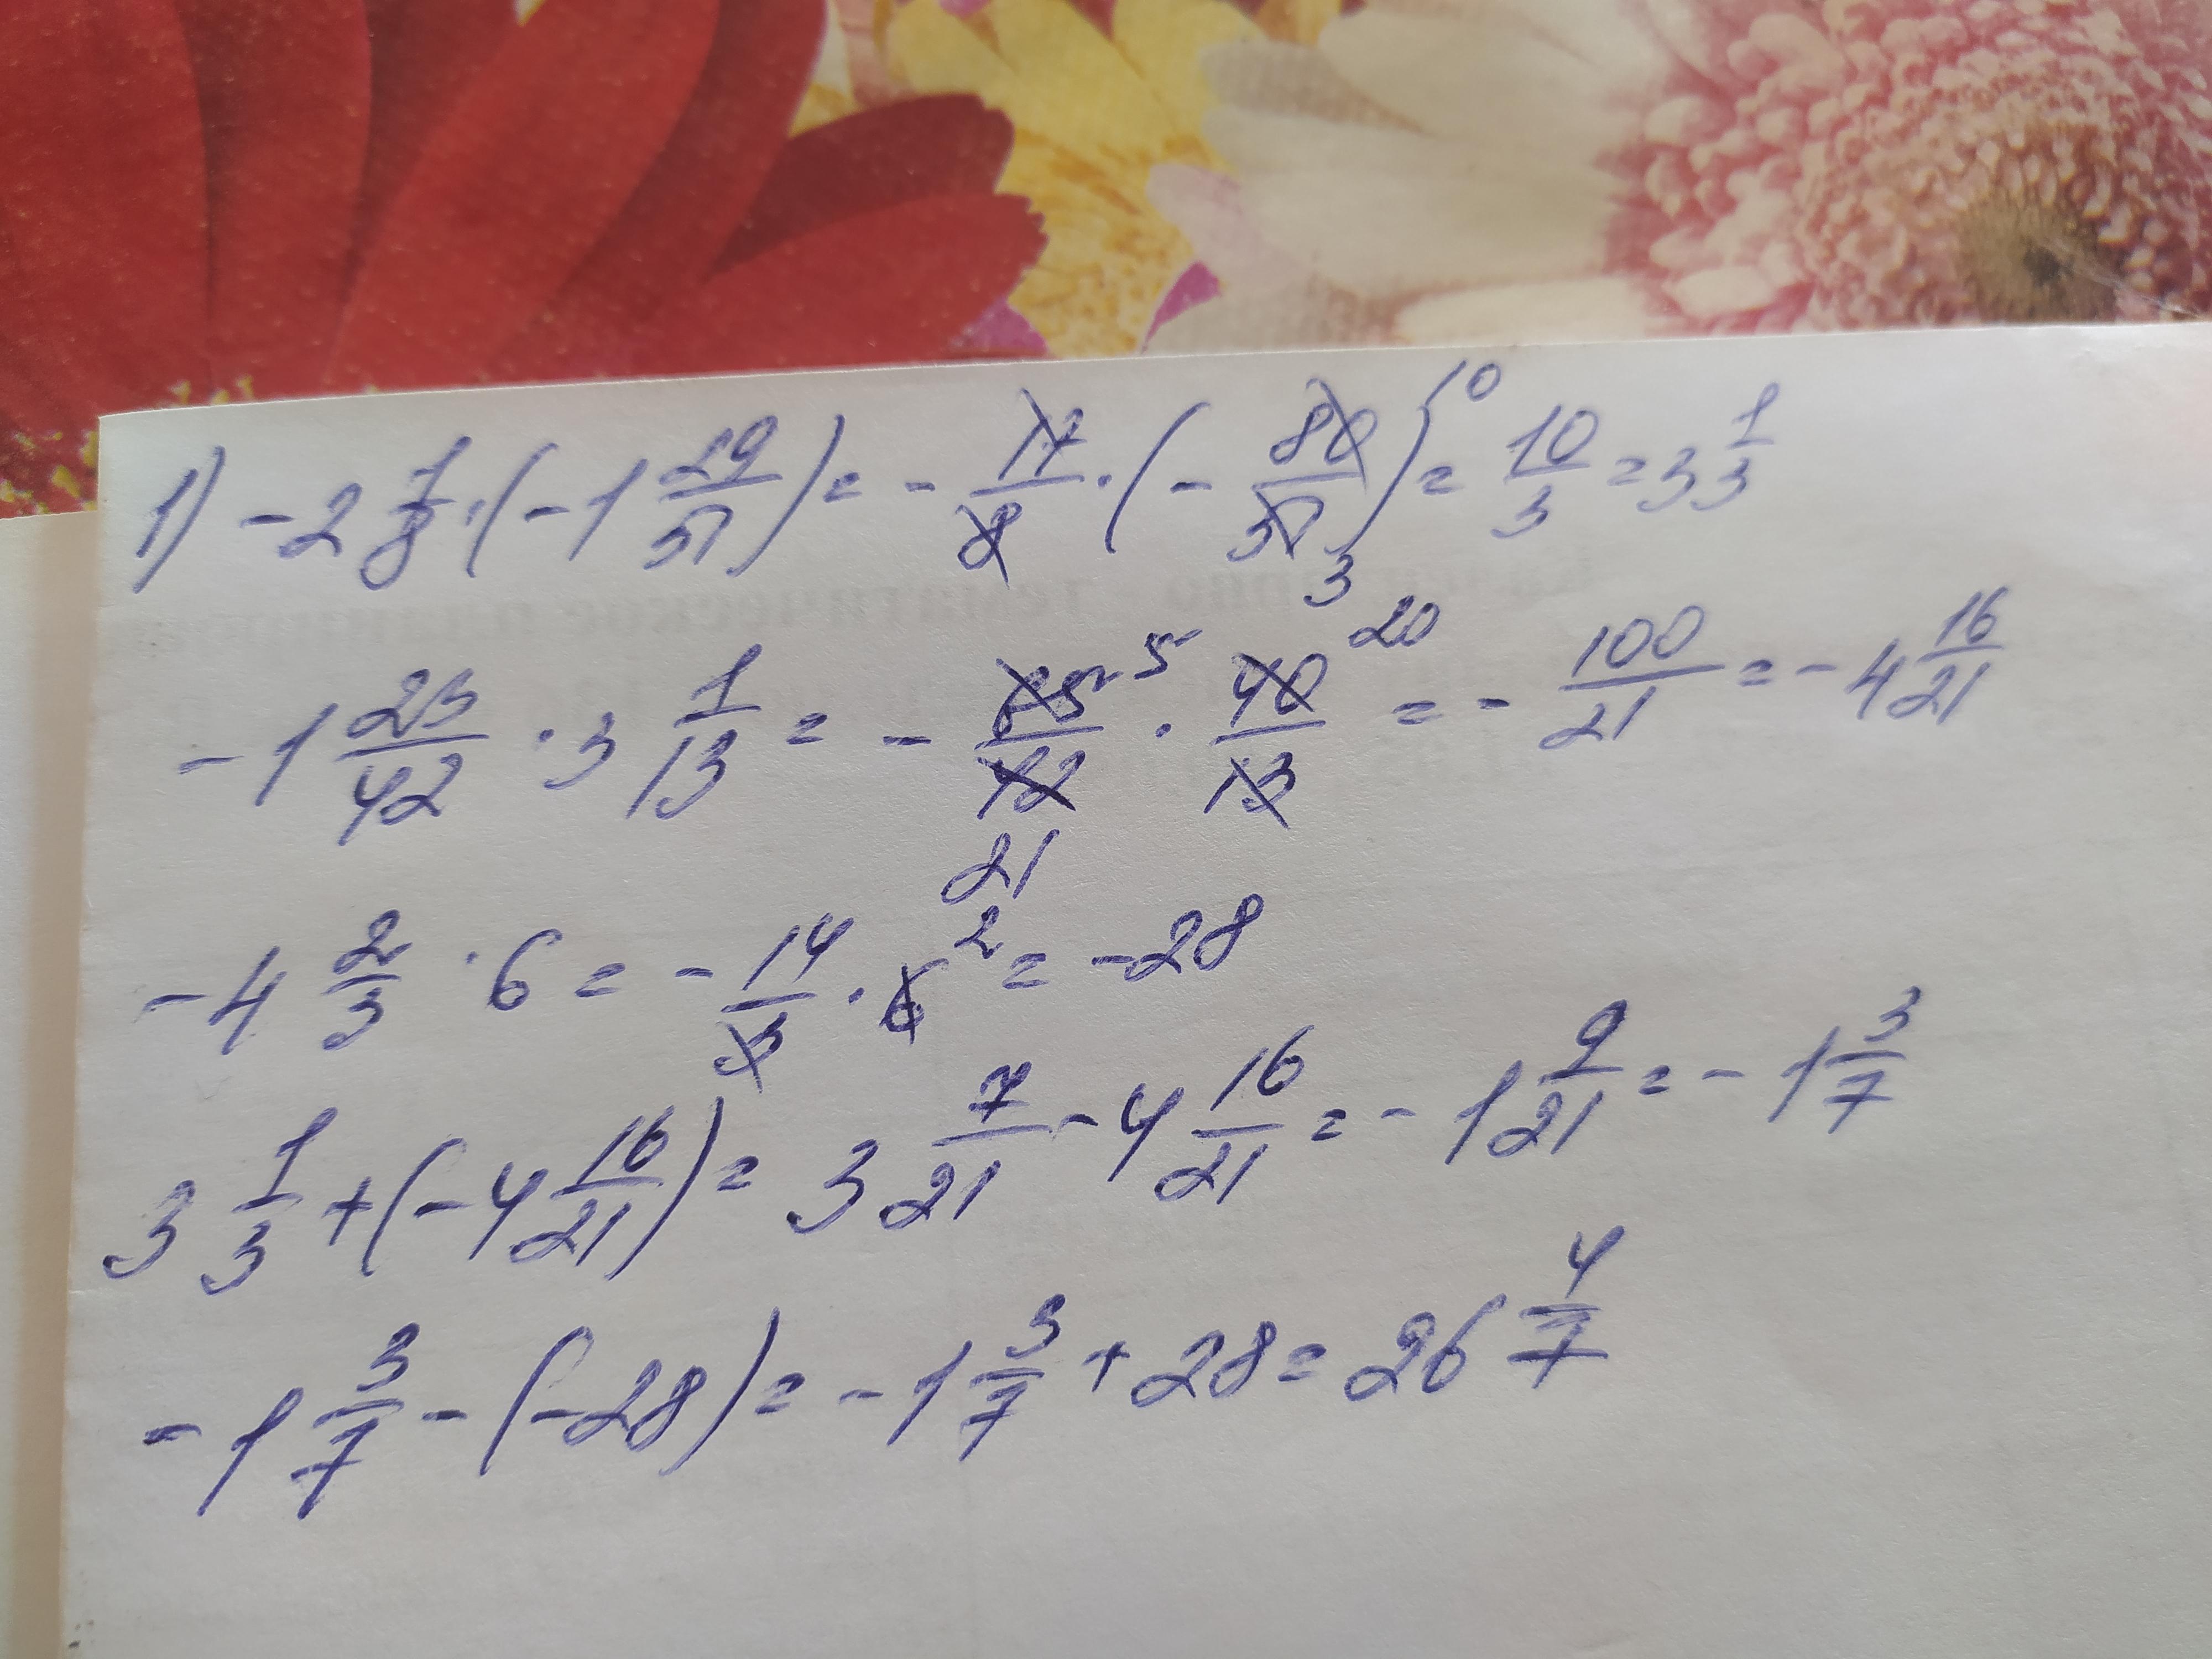 1) -2 1/8 · (-1 29/51) = - 17/8 · (- 80/51) 10 3 = 10/3 = 3 1/3
-1 23/42 · 3 1/13 = - 65/42 5 21 · 40/13 20 = - 100/21 = -4 16/21
-4 2/3 · 6 = - 14/3 · 6 2 = -28
3 1/3 + (-4 16/21) = 3 7/21 - 4 16/21 = -1 9/21 = -1 3/7
-1 3/7 - (-28) = -1 3/7 + 28 = 26 4/7